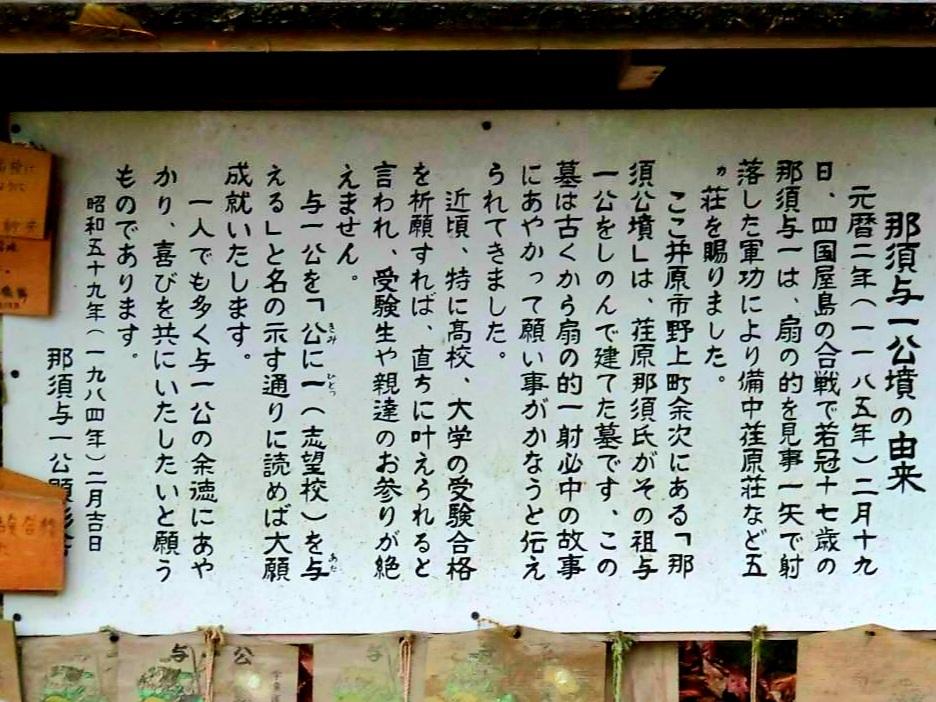 那須与一公墳の由来
元暦二年（一一八五年）二月十九
日、四国屋島の合戦で若冠十七歳の
那須与一は、扇の的を見事一矢で射
落した軍功により備中荏原荘など五
ヵ荘を賜りました。
ここ井原市野上町余次にある「那
須公墳」は、荏原那須氏がその祖与
一公をしのんで建てた墓です、この
墓は古くから扇の的一射必中の故事
にあやかって願い事がかなうと伝え
られてきました。
近頃、特に高校、大学の受験合格
を祈願すれば、直ちに叶えられると
言われ、受験生や親達のお参りが絶
えません。
与一公を「公に一（志望校）を与
きみ ひとつ あた
える」と名の示す通りに読めば大願
成就いたします。
一人でも多く与一公の余徳にあや
かり、喜びを共にいたしたいと願う
ものであります。
昭和五十九年（一九八四年）二月吉日
那須与一公顕彰会
与 公
与